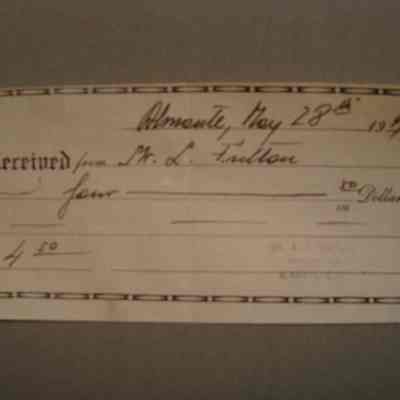 Almonte, May 28th 19
Received from W. L. Fulton
four 50/100 Dollar
4 50